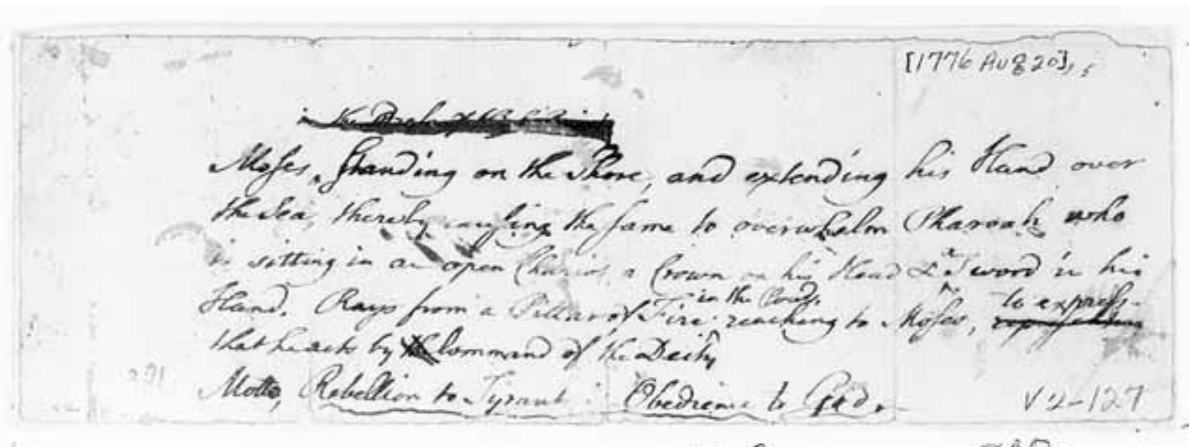 [1776 Aug 20]
Moses, standing on the Shore, and extending his Hand over
the Sea, thereby causing the same to overwhelm Pharoah who
is sitting in an open Chariot, a Crown on his Head & a Sword in his
Hand. Rays from a Pillar of Fire in the Clouds reaching to Moses, to express
that he acts by Command of the Deity
Motto, Rebellion to Tyrants is Obedience to God.
V 2-127